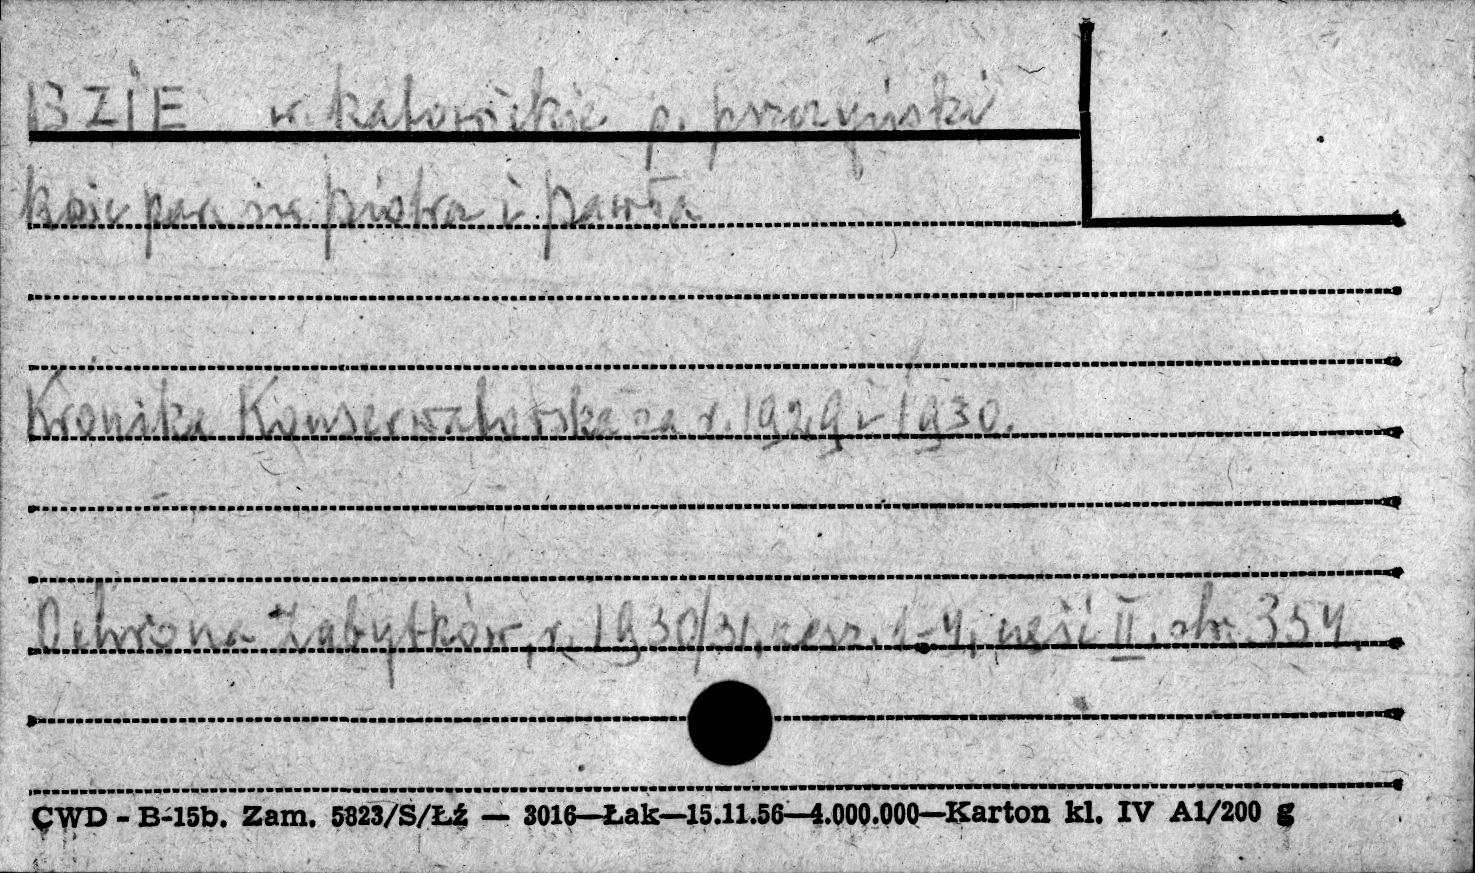 BZIE w. katowickie p. pszczyński
kość par. św. Piotra i Pawła
Kronika Konserwatorska za r. 1929 i 1930.
Ochrona Zabytków, r. 1930/31, zesz. 1-4, część II. str. 354.
CWD - B-15b. Zam. 5823/S/Łź — 3016—Łak—15.11.56—4.000.000—Karton kl. IV A1/200 g